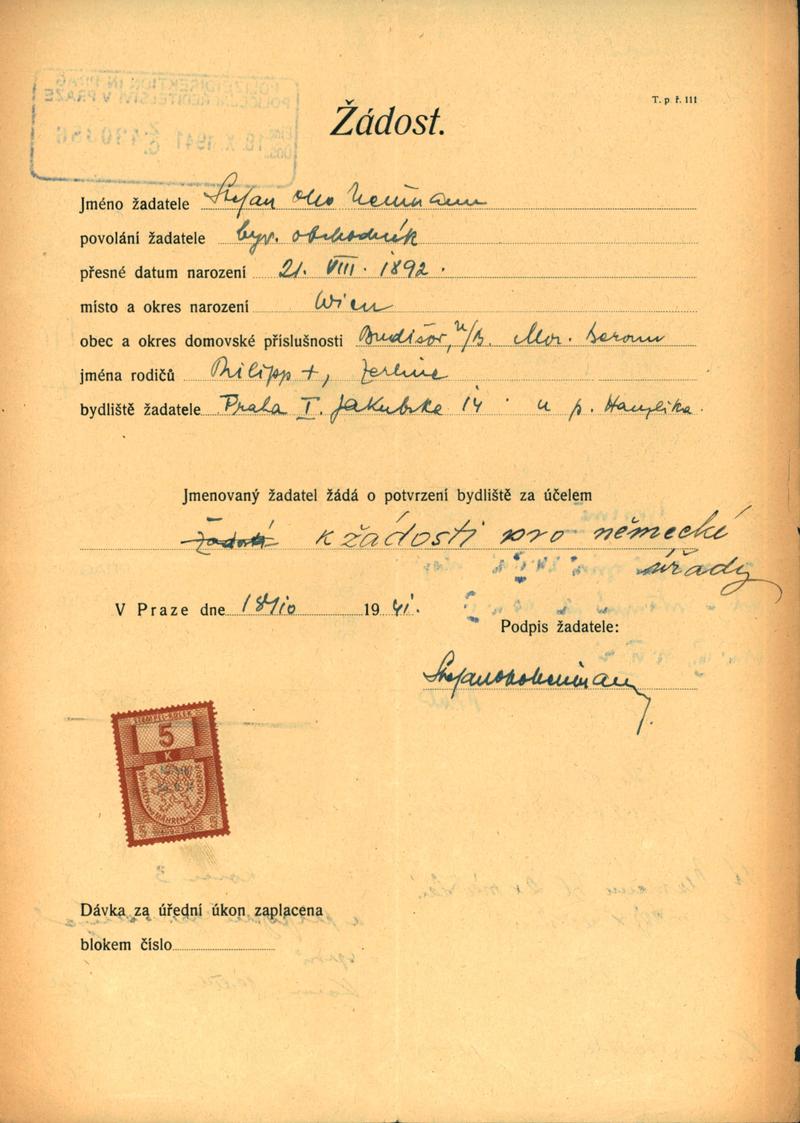 POLIZEIDIREKTION IN PRAG
POLICEJNÍ ŘEDITELSTVÍ V PRAZE
18.X.1941
T. p ř. 111
Žádost.
Jméno žadatele Stefan Otto Neumann
povolání žadatele býv. obchodník
přesné datum narození 21. VIII. 1892.
místo a okres narození Wien
obec a okres domovské příslušnosti Budišov, n/B. Mor.
jména rodičů Philipp +, Zerline
bydliště žadatele Praha I. Jakubska 14 u p.
Jmenovaný žadatel žádá o potvrzení bydliště za účelem
k žádosti pro německé
úřady
V Praze dne 18/10 19 41.
Podpis žadatele:
Stefan Otto Neumann
STEMPEL-KOLEK
5
K
BÖHMEN UND MÄHREN ČECHY A MORAVA
5 5
Dávka za úřední úkon zaplacena
blokem číslo